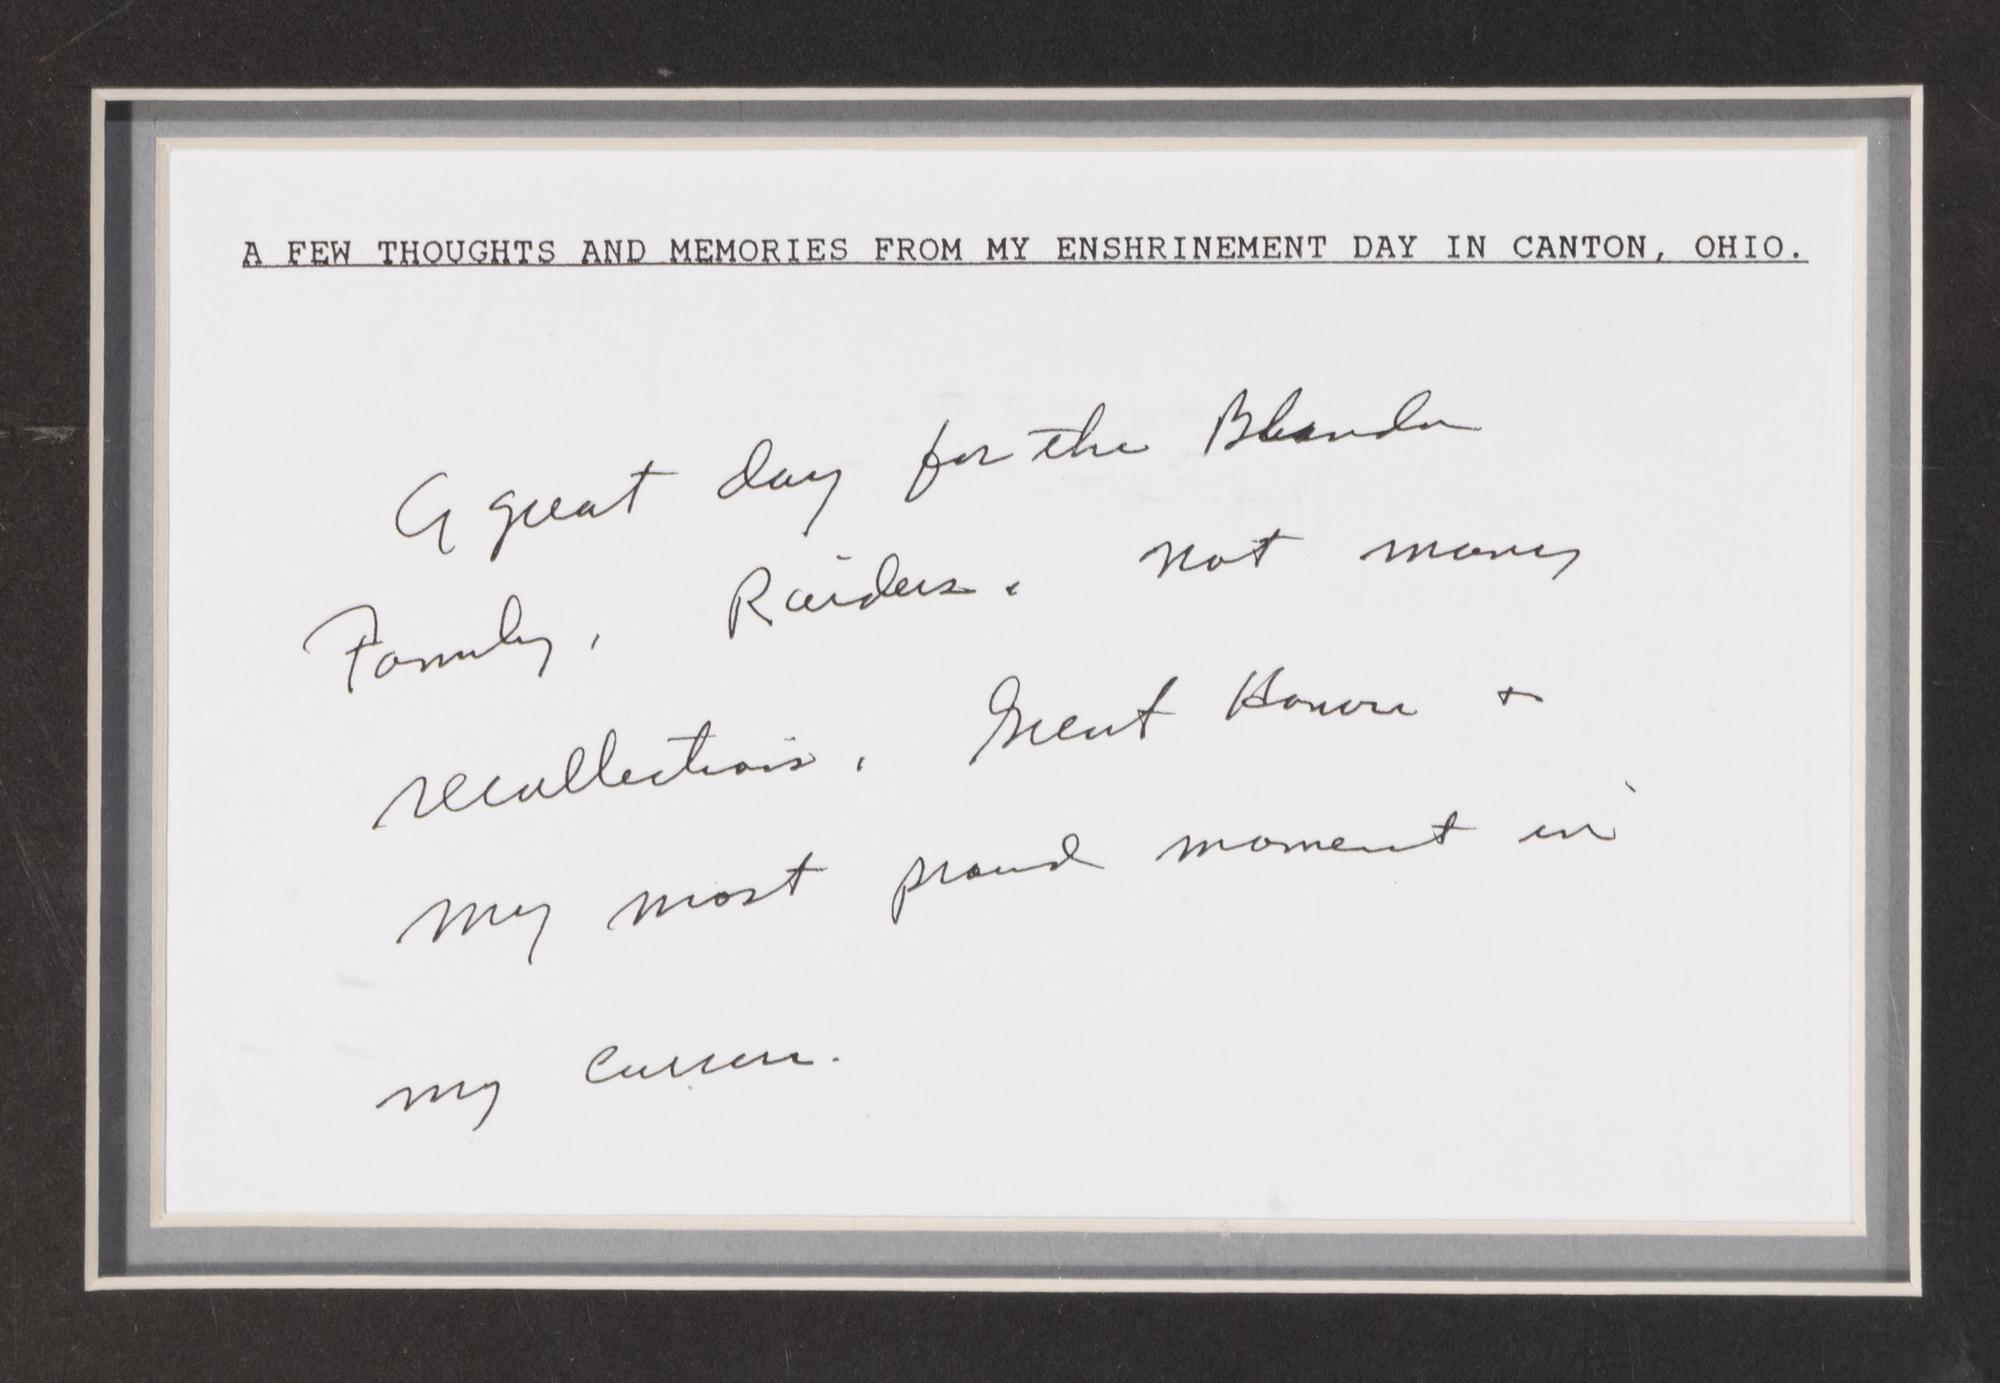 A FEW THOUGHTS AND MEMORIES FROM MY ENSHRINEMENT DAY IN CANTON, OHIO.
A great day for the Blanda
Family, Raiders. Not many
recollections. Great Honor +
my most proud moment in
my career.